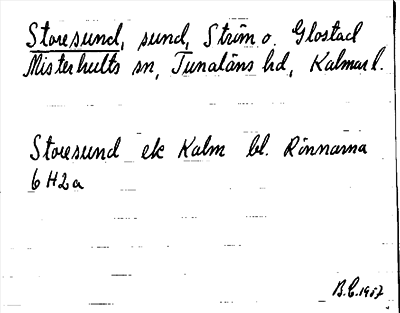 Storesund, sund, Ström o. Glostad
Misterhults sn, Tunaläns hd, Kalmar l.
Storesund ek Kalm bl. Rönnarna
6 H2a
B.C. 1957